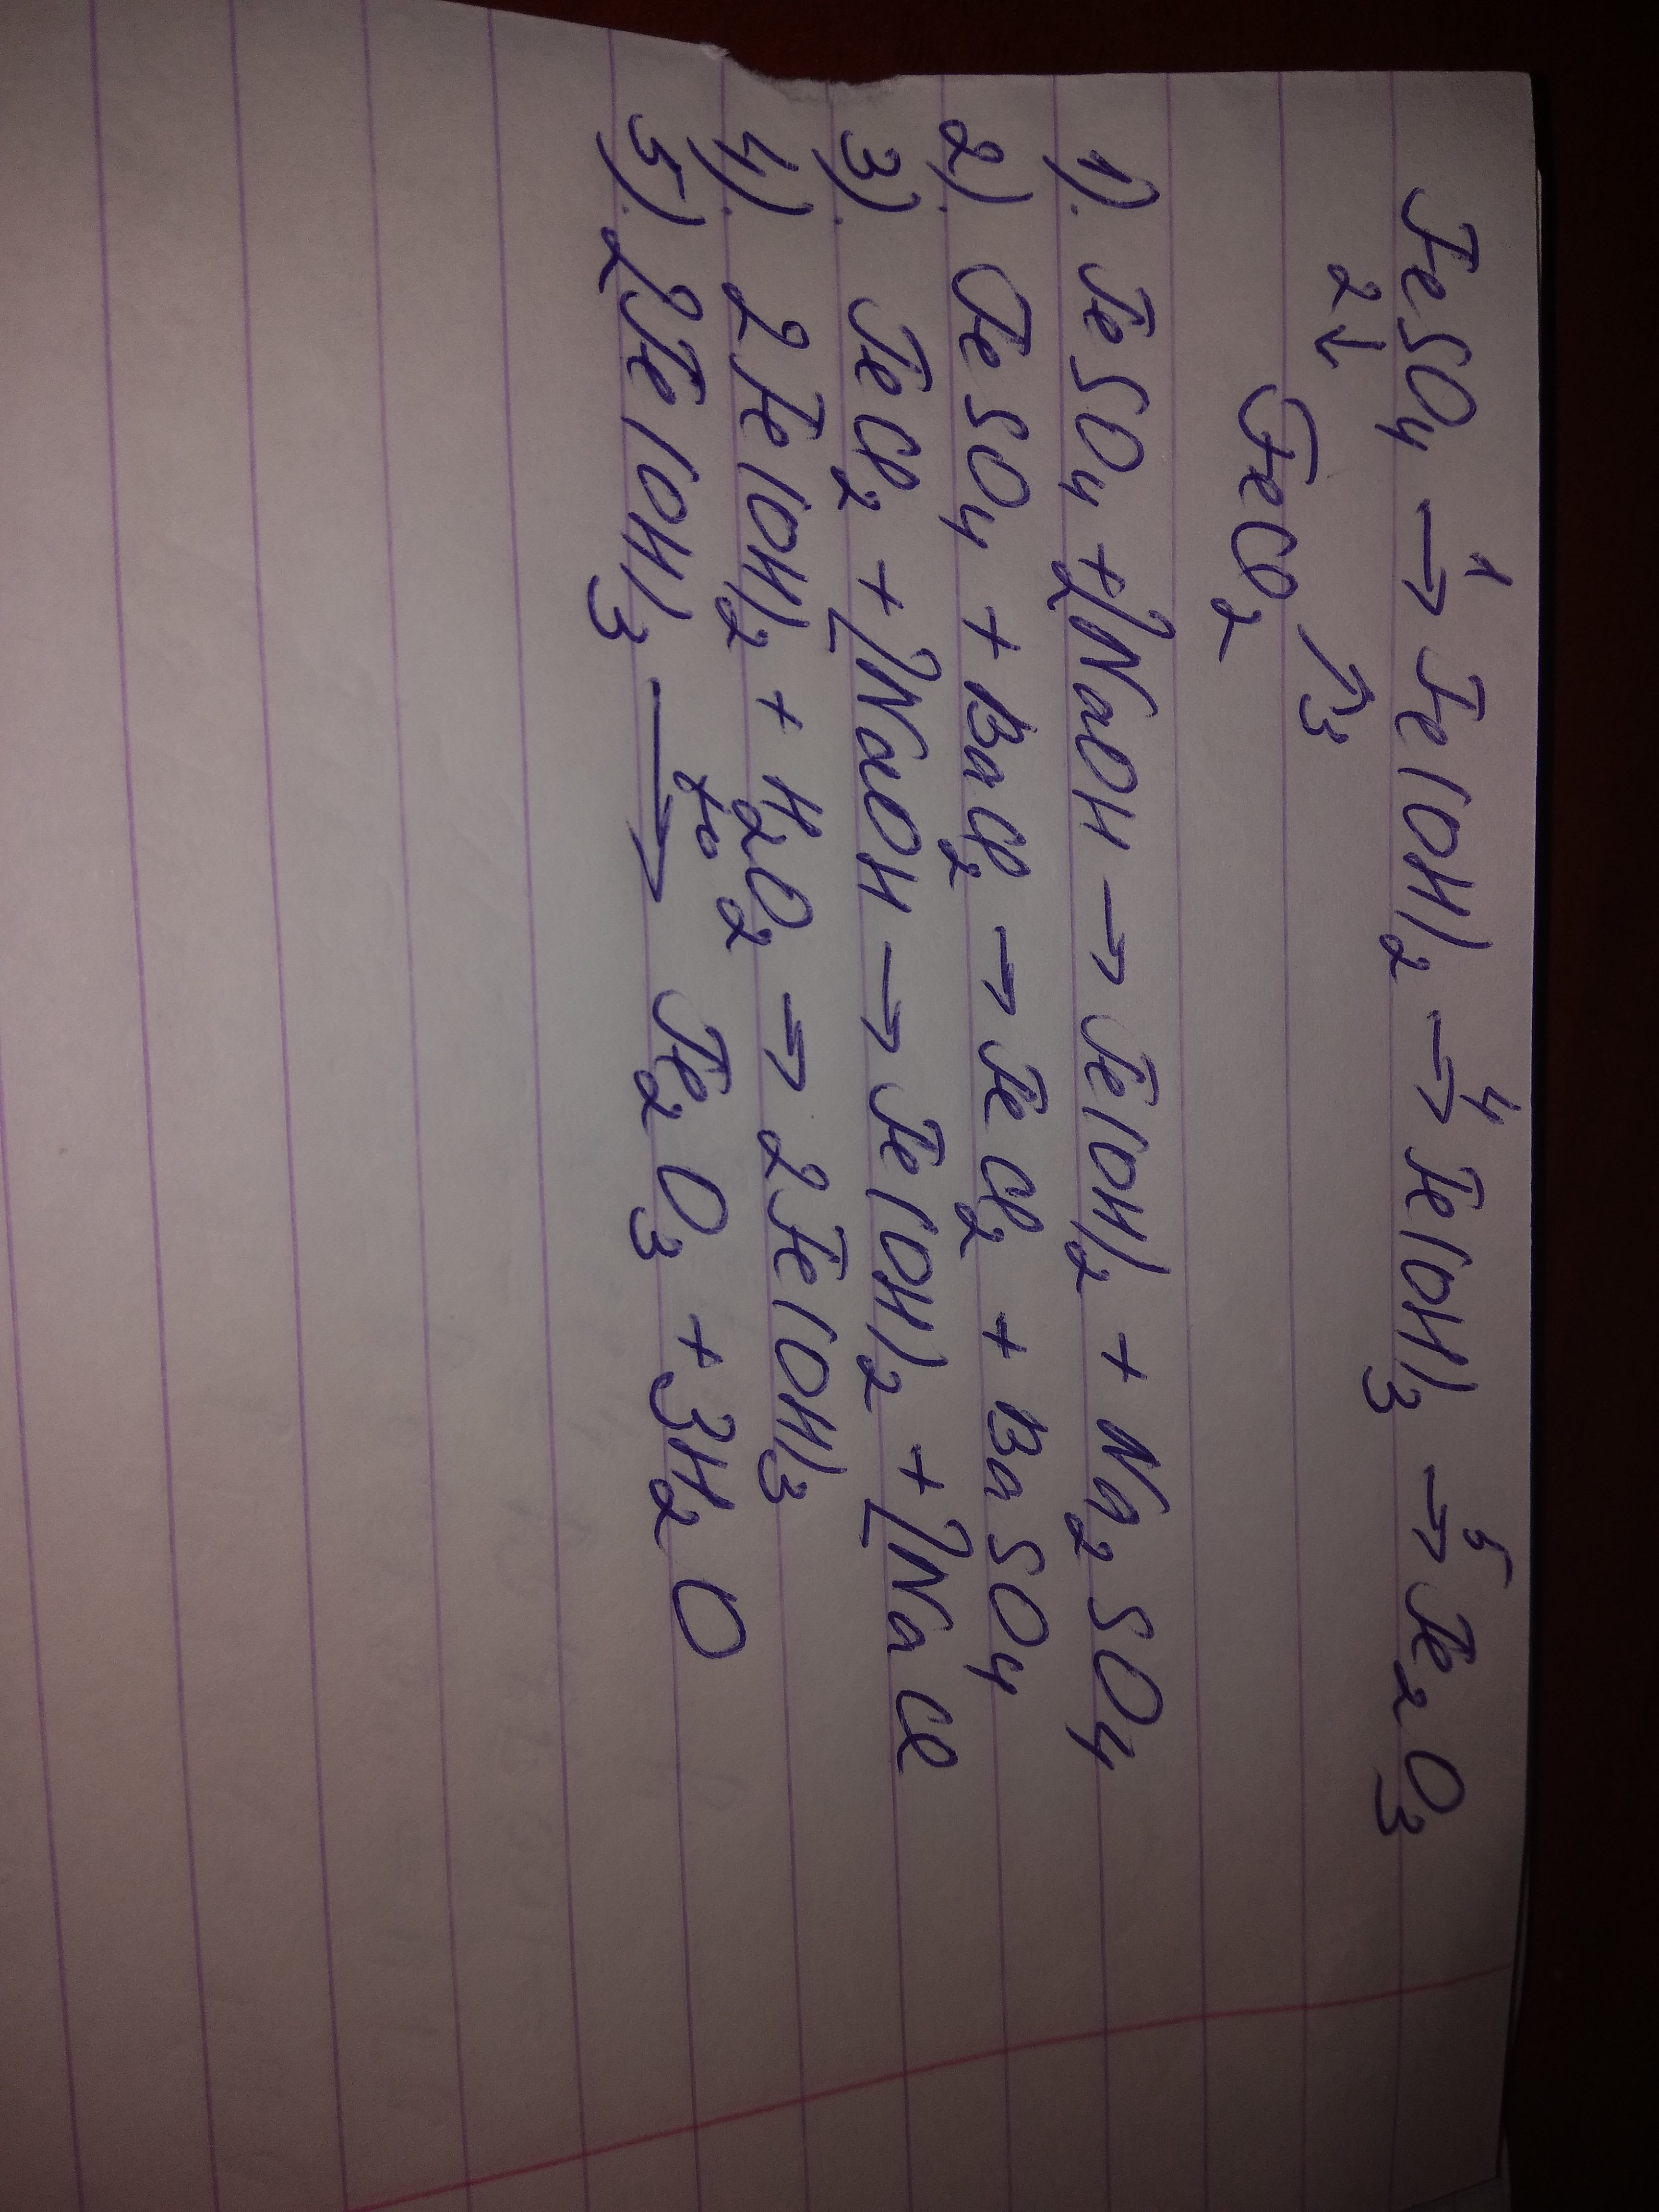 FeSO₄ →¹ Fe(OH)₂ →⁴ Fe(OH)₃ →⁵ Fe₂O₃
2↓ ↗3
FeCl₂
1). FeSO₄ + 2NaOH → Fe(OH)₂ + Na₂SO₄
2). FeSO₄ + BaCl₂ → FeCl₂ + BaSO₄
3). FeCl₂ + 2NaOH → Fe(OH)₂ + 2NaCl
4). 2Fe(OH)₂ + H₂O₂ → 2Fe(OH)₃
5). 2Fe(OH)₃ →t° Fe₂O₃ + 3H₂O